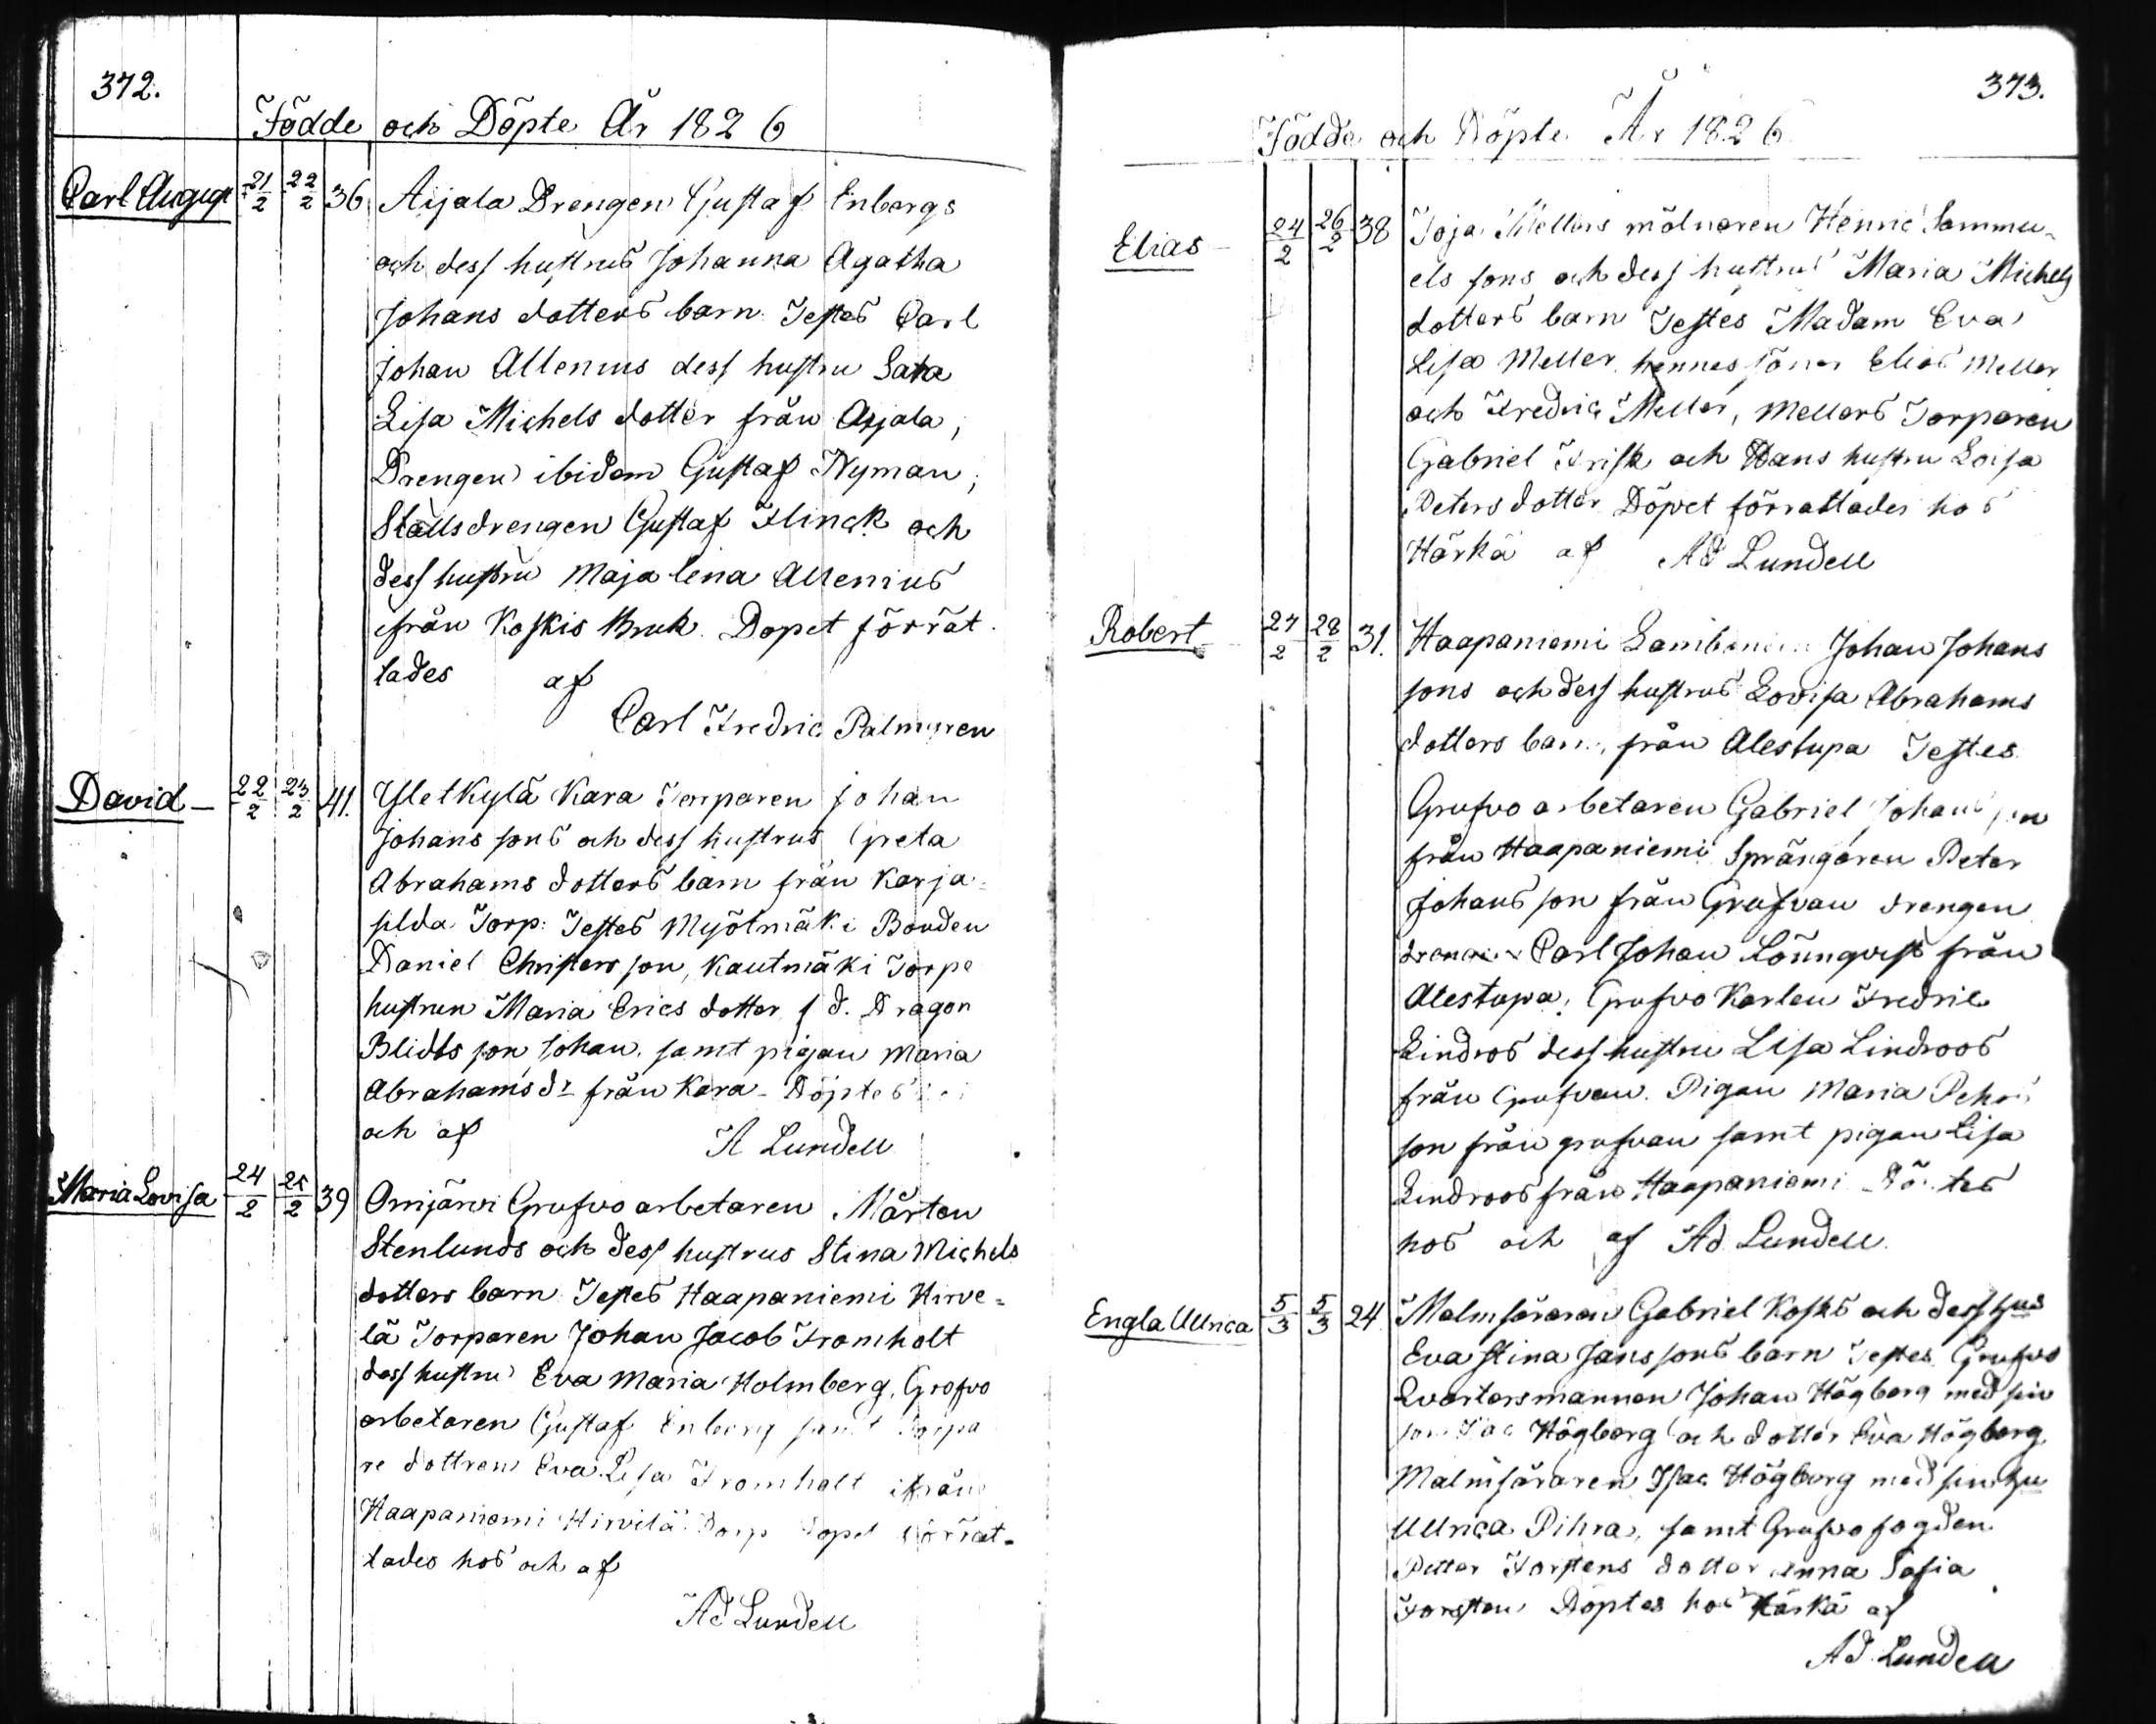 372.
Födde och Döpte År 1826
Carl August 21/2 22/2 36 Aijala Drengen Gustaf Enbergs
och dess hustrus Johanna Agatha
Johans dotters barn. Testes Carl
Johan Allenius dess hustru Sara
Lisa Michels dotter från Aijala,
Drengen ibidem Gustaf Nyman,
Stallsdrengen Gustaf Flinck och
dess hustru Maja lena Allenius
ifrån Koskis Bruk. Dopet förrät
tades af
Carl Fredric Palmgren
David - 22/2 23/2 41. Ylletkylä Kara Torparen Johan
Johans sons och dess hustrus Greta
Abrahams dotters barn från Karja
silda Torp: Testes Myölmäki Bonden
Daniel Christersson, Kautmäki Torpe
hustrun Maria Erics dotter f d. Dragon
Blidts son Johan, samt pigan Maria
Abrahams dr från Kara - Döptes
och af A Lundell
Maria Lovisa 24/2 25/2 39 Orrijärvi Grufvo arbetaren Mårten
Stenlunds och dess hustrus Stina Michels
dotters barn Testes Haapaniemi Hirve=
lä Torparen Johan Jacob Fromholt
dess hustru Eva Maria Holmberg, Grofvo
arbetaren Gustaf Enberg samt Torpa
re dottren Eva Lisa Fromholt ifrån
Haapaniemi Hirvilä Torp Dopet förrät-
tades hos och af
Ad Lundell
373.
Födde och Döpte År 1826
Elias - 24/2 26/2 38 Toja Mellers mölnaren Henric Sammu-
els sons och dess hustrus Maria Michels
dotters barn Testes Madam Eva
Lisa Meller hennes söner Elias Meller
och Fredric Meller, Mellers Torparen
Gabriel Frisk och Hans hustru Loisa
Peters dotter Döpet förrättades hos
Härkä af Ad Lundell
Robert - 27/2 28/2 31. Haapaniemi Johan Johans
sons och dess hustrus Lovisa Abrahams
dotters barn, från Alestupa Testes
Grufvo arbetaren Gabriel Johans son
från Haapaniemi Sprängaren Peter
Johans son från Grufvan drengen
Carl Johan Lönnqvist från
Alestupa, Grufvo Karlen Fredric
Lindros dess hustru Lisa Lindroos
från Grufvan. Pigan Maria Pehrs
son från grufvan samt pigan Lisa
Lindroos från Haapaniemi Döptes
hos och af Ad Lundell.
Engla Ullrica 5/3 5/3 24 Malmföraren Gabriel Kosks och dess hus
Eva Stina Jans sons barn Testes Grufvo
Qvartersmannen Johan Högberg med sin
son Isac Högberg och dotter Eva Högberg
Malmföraren Isac Högberg med sin hu
Ullrica Pihra, samt Grufvo fogden
Petter Forstens dotter Anna Sofia
Forsten Döptes hos Härkä af
Ad. Lundell